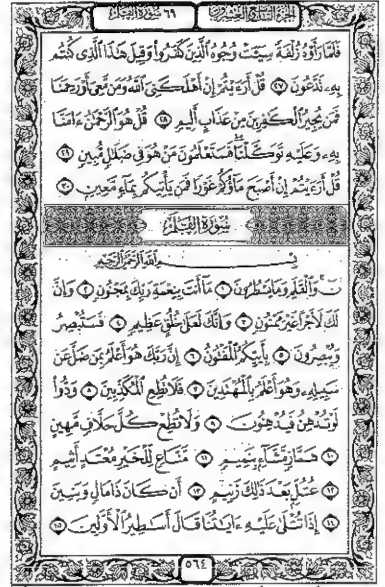 الجزء التاسع والعشرون
٦٩ سورة القلم
فَلَمَّا رَأَوْهُ زُلْفَةً سِيٓـَٔتْ وُجُوهُ ٱلَّذِينَ كَفَرُوا۟ وَقِيلَ هَـٰذَا ٱلَّذِى كُنتُم
بِهِۦ تَدَّعُونَ ٢٧ قُلْ أَرَءَيْتُمْ إِنْ أَهْلَكَنِىَ ٱللَّهُ وَمَن مَّعِىَ أَوْ رَحِمَنَا
فَمَن يُجِيرُ ٱلْكَـٰفِرِينَ مِنْ عَذَابٍ أَلِيمٍ ٢٨ قُلْ هُوَ ٱلرَّحْمَـٰنُ ءَامَنَّا
بِهِۦ وَعَلَيْهِ تَوَكَّلْنَا فَسَتَعْلَمُونَ مَنْ هُوَ فِى ضَلَـٰلٍ مُّبِينٍ ٢٩
قُلْ أَرَءَيْتُمْ إِنْ أَصْبَحَ مَآؤُكُمْ غَوْرًا فَمَن يَأْتِيكُم بِمَآءٍ مَّعِينٍۭ ٣٠
سُورَةُ القَلَمِ
بِسْمِ ٱللَّهِ ٱلرَّحْمَـٰنِ ٱلرَّحِيمِ
نٓ وَٱلْقَلَمِ وَمَا يَسْطُرُونَ ١ مَآ أَنتَ بِنِعْمَةِ رَبِّكَ بِمَجْنُونٍ ٢ وَإِنَّ
لَكَ لَأَجْرًا غَيْرَ مَمْنُونٍ ٣ وَإِنَّكَ لَعَلَىٰ خُلُقٍ عَظِيمٍ ٤ فَسَتُبْصِرُ
وَيُبْصِرُونَ ٥ بِأَييِّكُمُ ٱلْمَفْتُونُ ٦ إِنَّ رَبَّكَ هُوَ أَعْلَمُ بِمَن ضَلَّ عَن
سَبِيلِهِۦ وَهُوَ أَعْلَمُ بِٱلْمُهْتَدِينَ ٧ فَلَا تُطِعِ ٱلْمُكَذِّبِينَ ٨ وَدُّوا۟
لَوْ تُدْهِنُ فَيُدْهِنُونَ ٩ وَلَا تُطِعْ كُلَّ حَلَّافٍ مَّهِينٍ
١٠ هَمَّازٍ مَّشَّآءٍۭ بِنَمِيمٍ ١١ مَّنَّاعٍ لِّلْخَيْرِ مُعْتَدٍ أَثِيمٍ
١٢ عُتُلٍّۭ بَعْدَ ذَٰلِكَ زَنِيمٍ ١٣ أَن كَانَ ذَا مَالٍ وَبَنِينَ
١٤ إِذَا تُتْلَىٰ عَلَيْهِ ءَايَـٰتُنَا قَالَ أَسَـٰطِيرُ ٱلْأَوَّلِينَ ١٥
٥٦٤